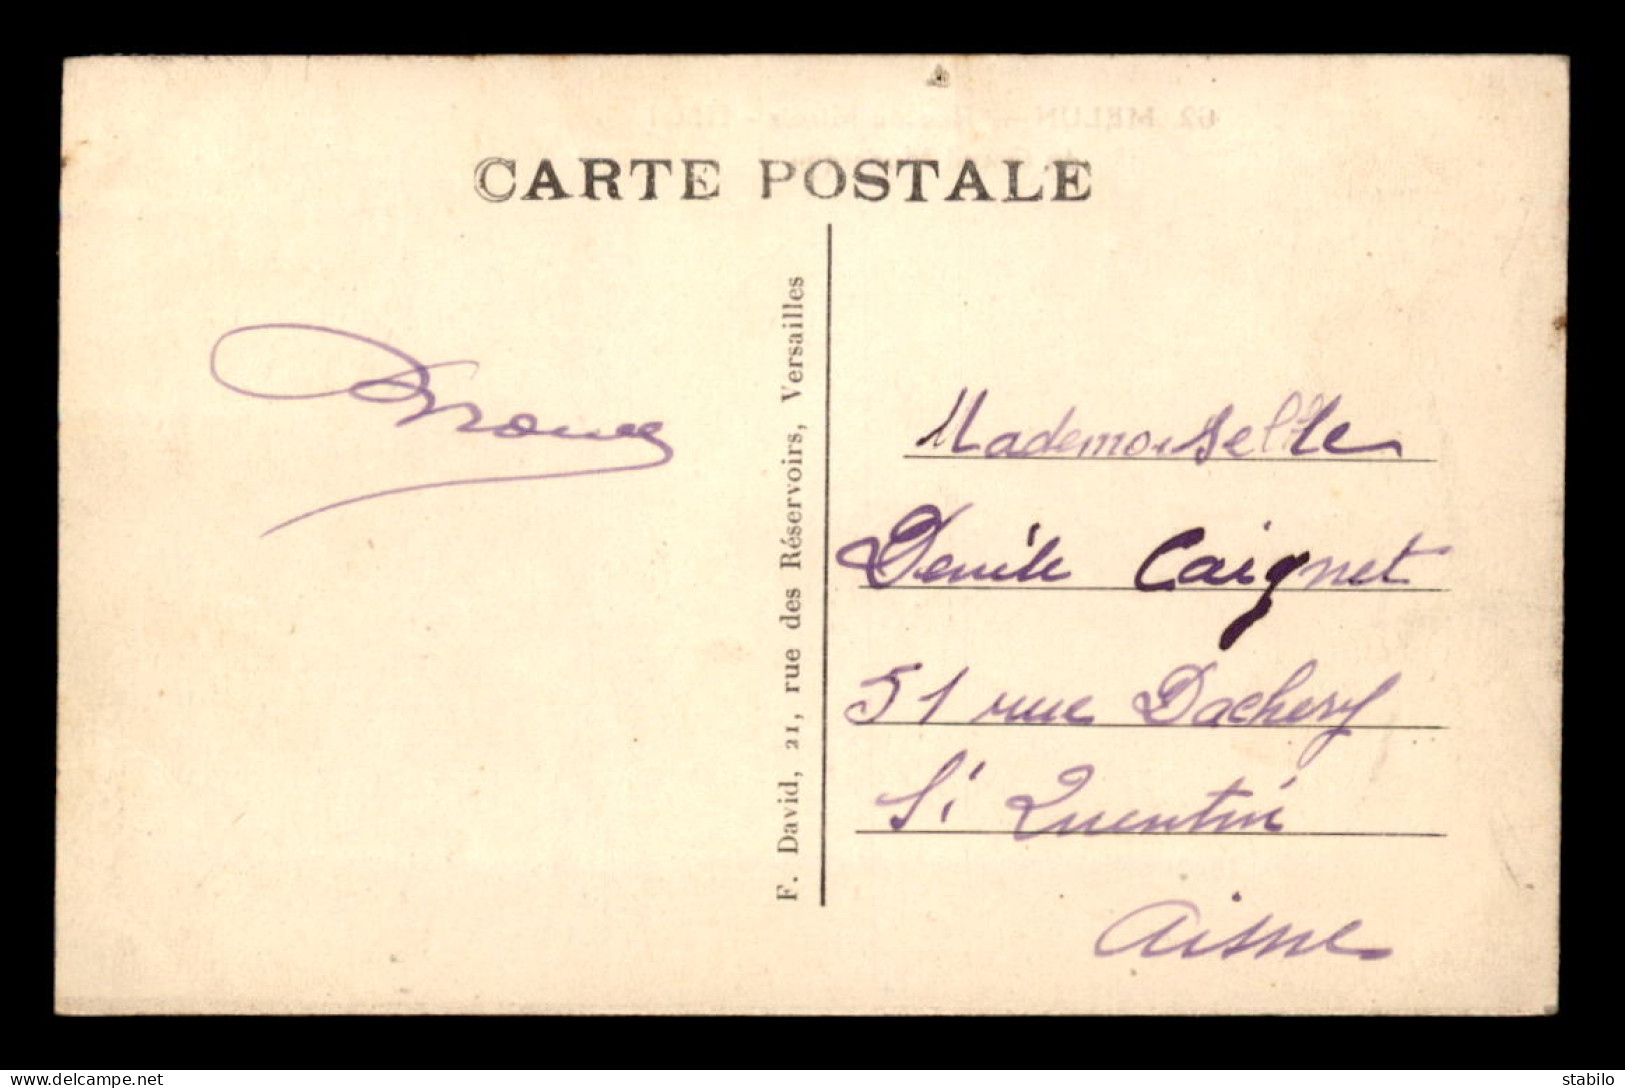 CARTE POSTALE
F. David, 21, rue des Réservoirs, Versailles
Mademoiselle
Denise Caignet
51 rue Dachery
St Quentin
Aisne
62 MELUN
www.delcampe.net
stabilo